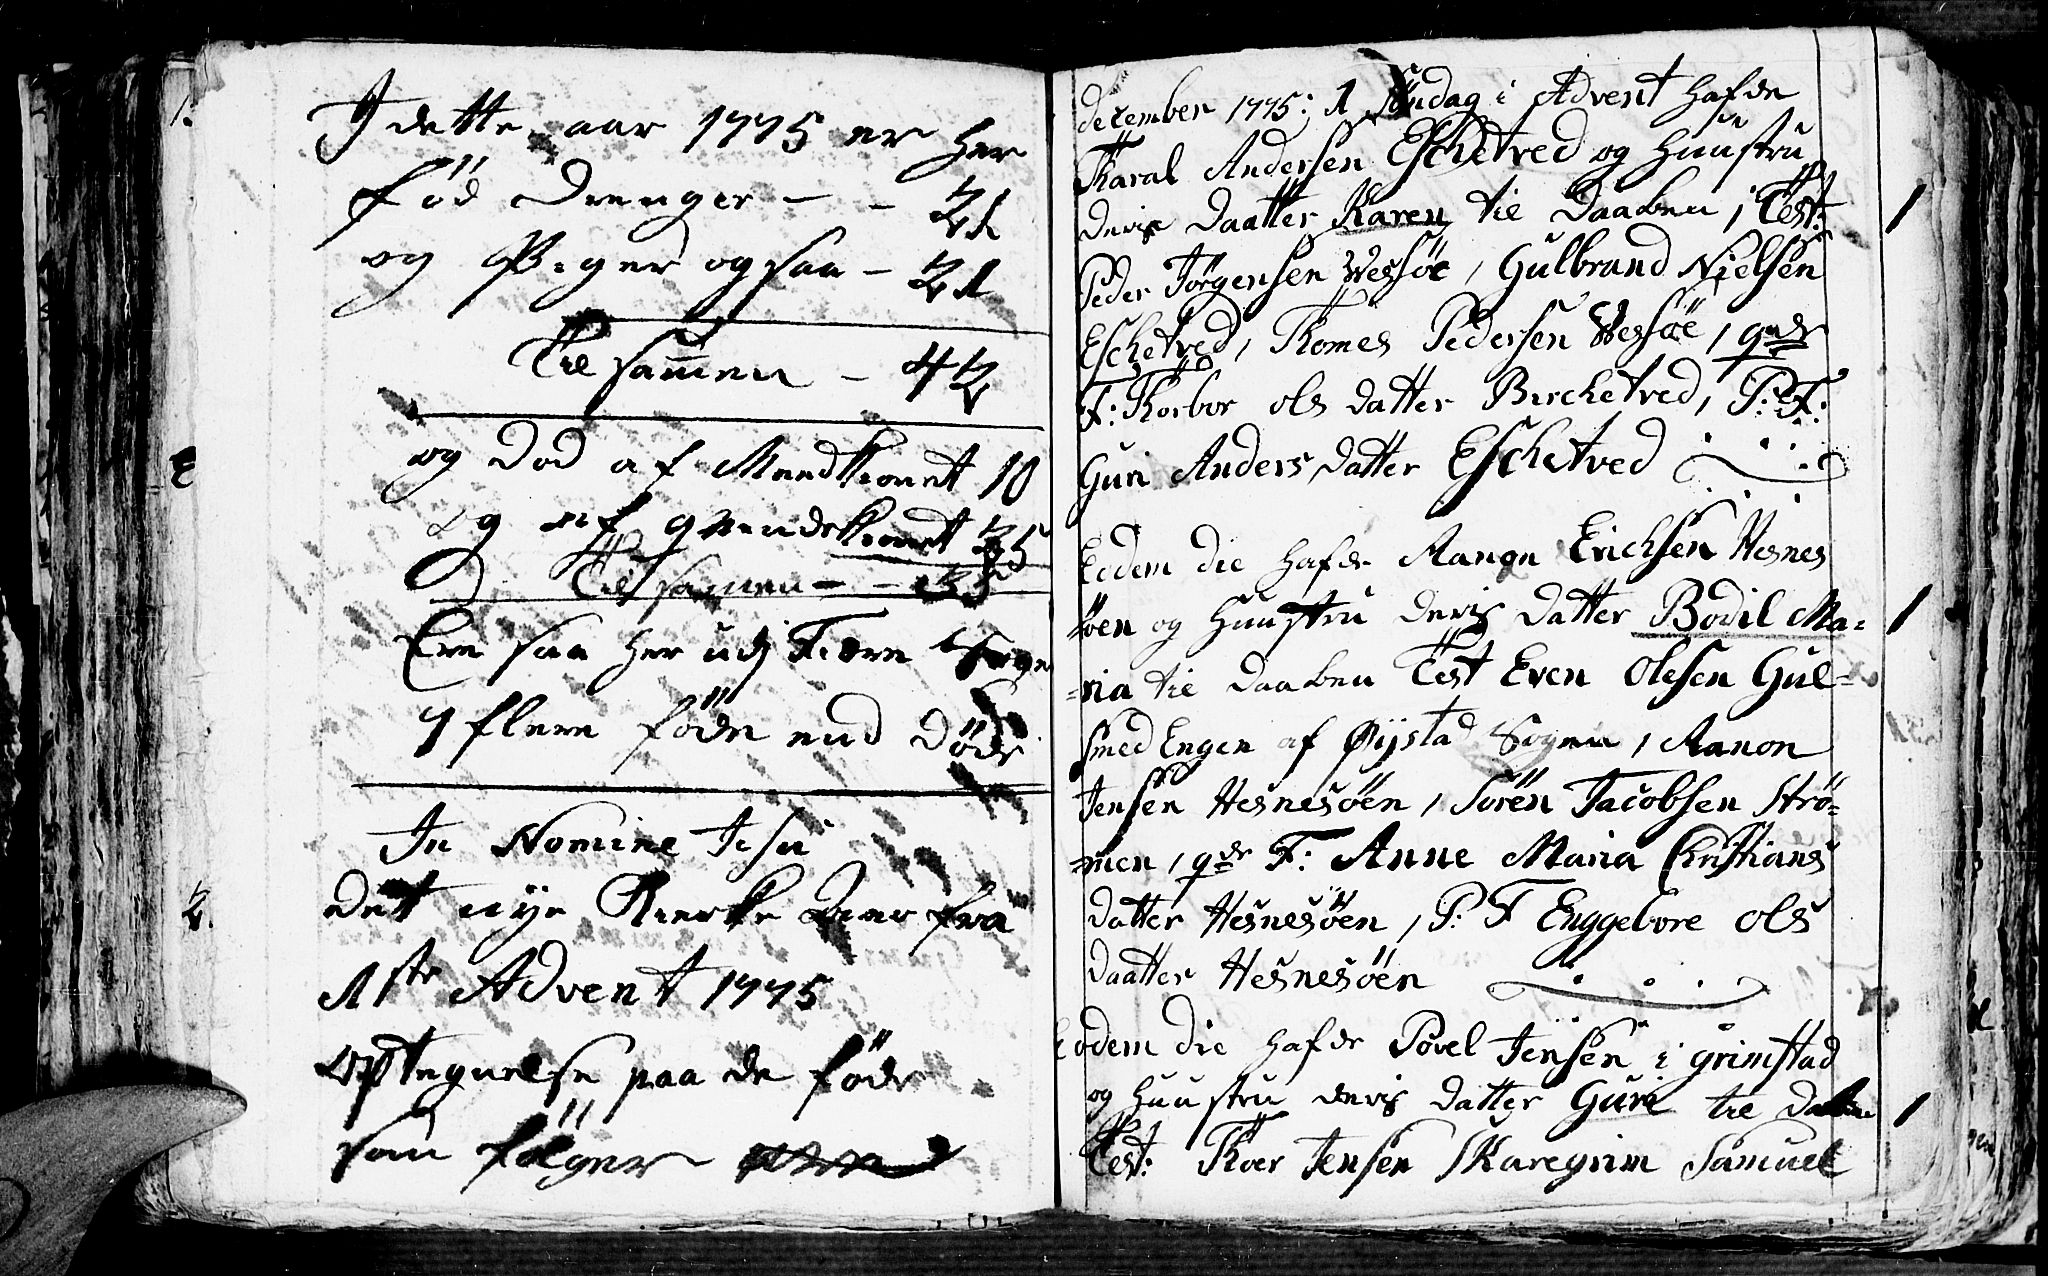 I dette aar 1775 er her
föd Drenger - - 21
og Piger ogsaa - 21
Tilsam̄en - 42
og Död af Mandkionet 10
og af qvindekionet 25
Tilsamen - - 35
Ere saa her udj Fiære Sogn
7 flere födde end Döde
In Nomine Jesu
Det nye Kierke Aar fra
1ste Advent 1775
Optegnelse paa de födde
som fölger
december 1775: 1 Söndag i Advent hafde
Tharal Andersen Eschetved og Huustru
deris Daatter Karen til Daaben, Test: 1
Peder Jörgensen Vessöe, Gulbrand Nielsen
Eschetved, Thomes Pedersen Vessöe, qnds
F: Thorbor ols datter Birchetved, P: F:
Guri Anders datter Eschetved
Eodem die hafde Aanon Erichsen Hesnes
-öen og Huustru deris Datter Bodil Ma= 1
=ria til Daaben Test Even Olesen Gul=
smed Engen af Öijstad Sogen, Aanon
Jensen Hesnesöen, Sören Jacobsen Strö=
=men, qds F: Anne Maria Christians
datter Hesnesöen, P: F Enggebore ols
daatter Hesnesöen
Eodem die hafde Povel Jensen i grimstad
og Huustru deris Datter Guri til Daaben 1
Test: Thoer Jensen Skaregrim Samuel